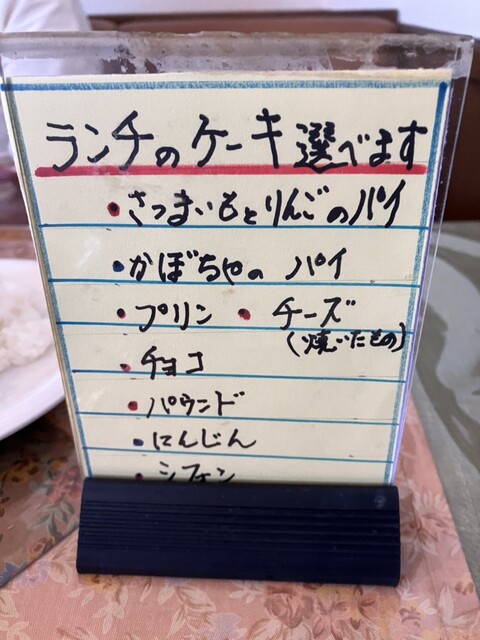 ランチのケーキ選べます
・さつまいもとりんごのパイ
・かぼちゃの パイ
・プリン ・チーズ
(焼いたもの)
・チョコ
・パウンド
・にんじん
・シフォン